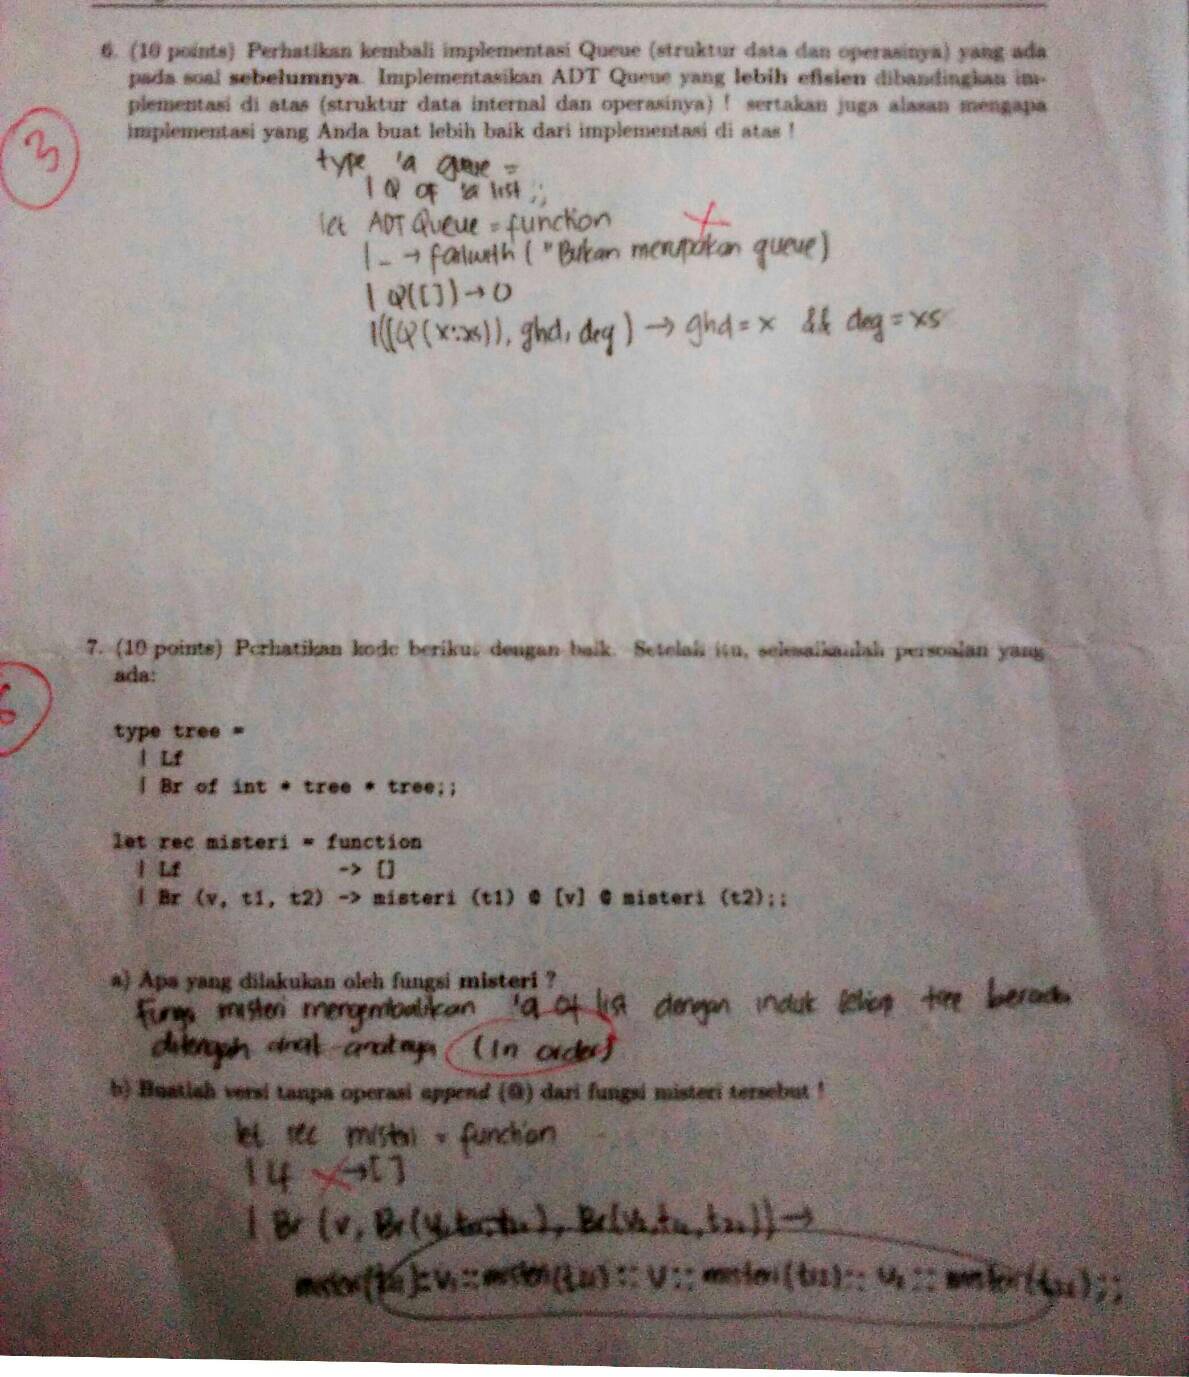 6. (10 points) Perhatikan kembali implementasi Queue (struktur data dan operasinya) yang ada
pada soal sebelumnya. Implementasikan ADT Queue yang lebih efisien dibandingkan im-
plementasi di atas (struktur data internal dan operasinya) ! sertakan juga alasan mengapa
implementasi yang Anda buat lebih baik dari implementasi di atas !
3
type 'a queue =
| Q of 'a list ;;
let ADT Queue = function
| _ → failwith ("Bukan merupakan queue)
| Q([]) → 0
|((Q(x::xs)), qhd, deq) → qhd = x && deq = xs
7. (10 points) Perhatikan kode berikut dengan baik. Setelah itu, selesaikanlah persoalan yang
ada:
type tree =
| Lf
| Br of int * tree * tree;;
let rec misteri = function
| Lf -> []
| Br (v, t1, t2) -> misteri (t1) @ [v] @ misteri (t2);;
a) Apa yang dilakukan oleh fungsi misteri ?
Fungsi misteri mengembalikan 'a of list dengan induk setiap tree berada
ditengah anak-anaknya (In order)
b) Buatlah versi tanpa operasi append (@) dari fungsi misteri tersebut !
let rec misteri = function
| Lf → []
| Br (v, Br(